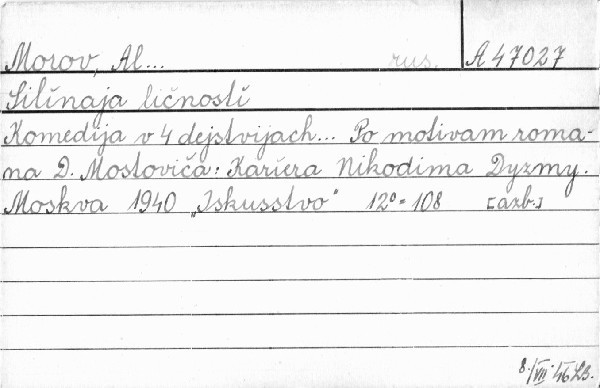 Morov, Al... rus. A 47027
Silínaja ličností
Komedija v 4 dejstvijach... Po motivam roma-
na D. Mostoviča: Karíera Nikodima Dyzmy.
Moskva 1940 „Iskusstvo" 12° = 108 [azb.]
8./VII 46